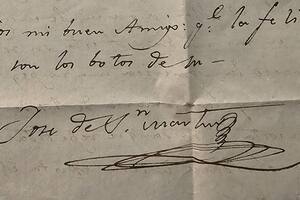 os mi buen Amigo: q.e la feli
son los botos de su
Jose de S.n Martin